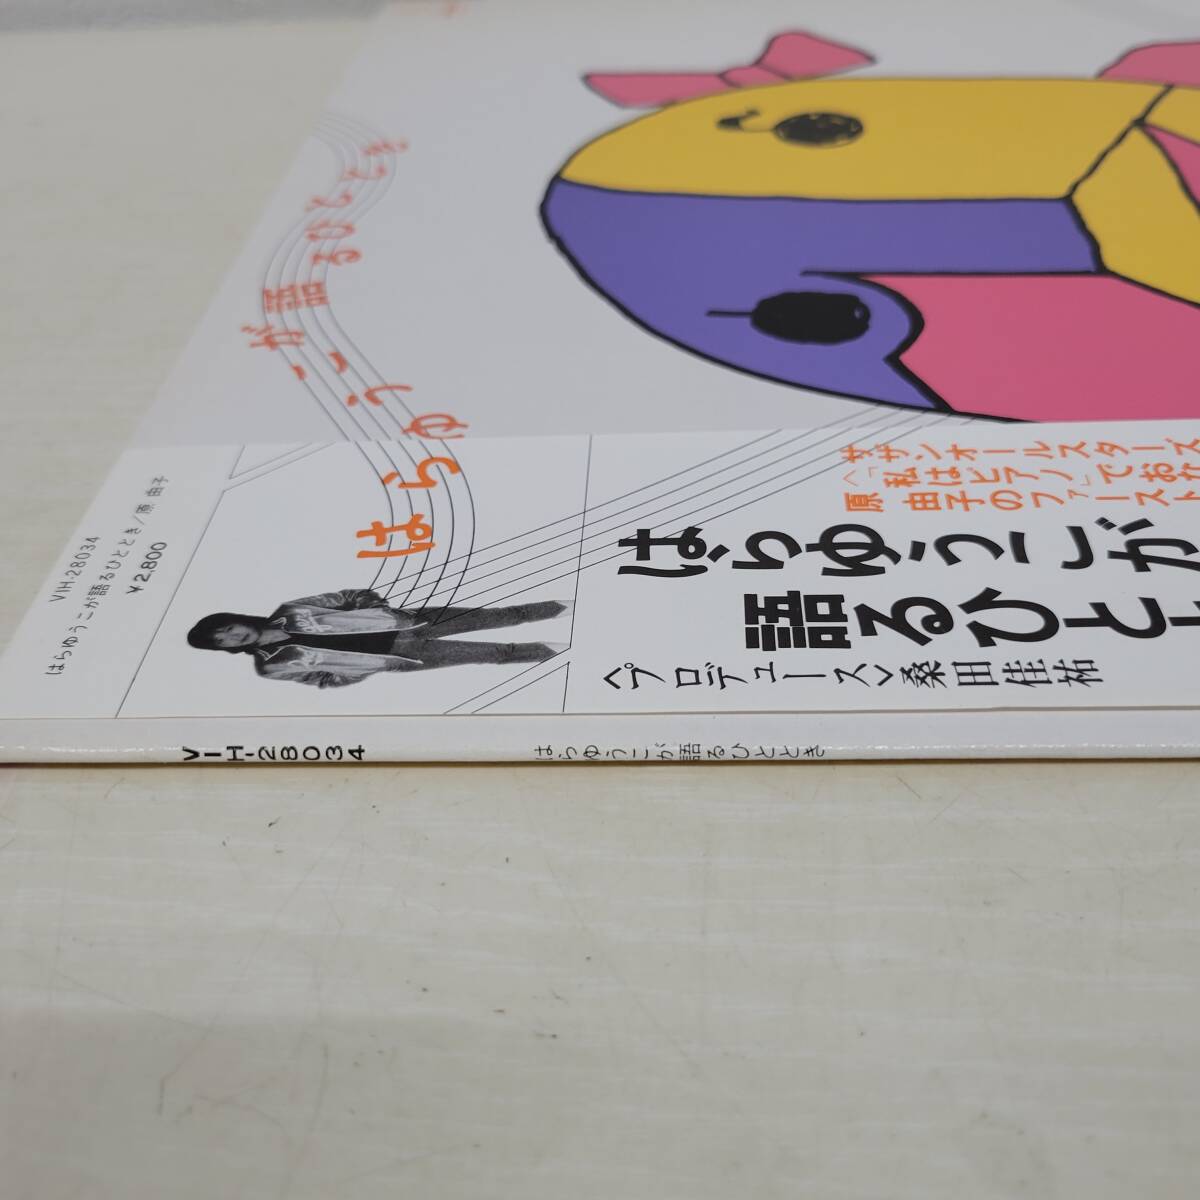 はらゆうこが語るひととき
VIH-28034
はらゆうこが語るひととき/原 由子
¥2,800
サザンオールスターズ
〈「私はピアノ」でおな
原 由子のファースト
はらゆうこが
語るひとと
〈プロデュース〉桑田佳祐
VIH-28034
はらゆうこが語るひととき